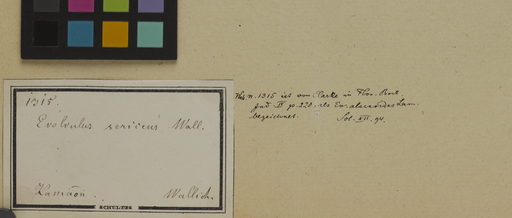 1315.
Evolvulus sericeus Wall.
Kamaon. Wallich.
n. 1315 ist von Clarke in Flor. Brit.
Ind. IV p. 220. als Ev. alsinoides Lam.
bezeichnet. Sol. XII. 94.